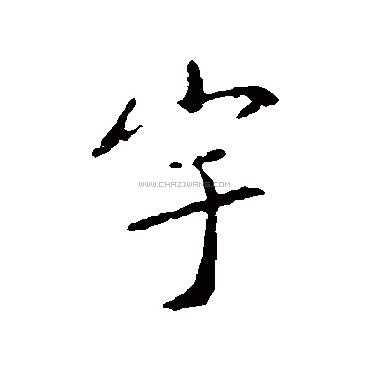 字
WWW.CHAZIWANG.COM